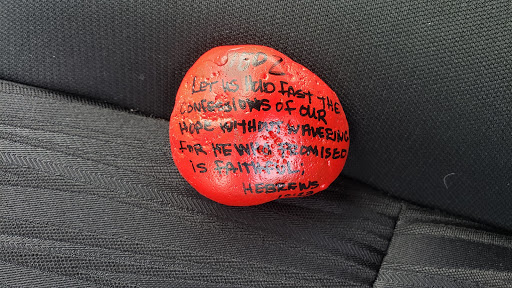 LET US HOLD FAST THE
CONFESSIONS OF OUR
HOPE WITHOUT WAVERING
FOR HE WHO PROMISED
IS FAITHFUL;
HEBREWS